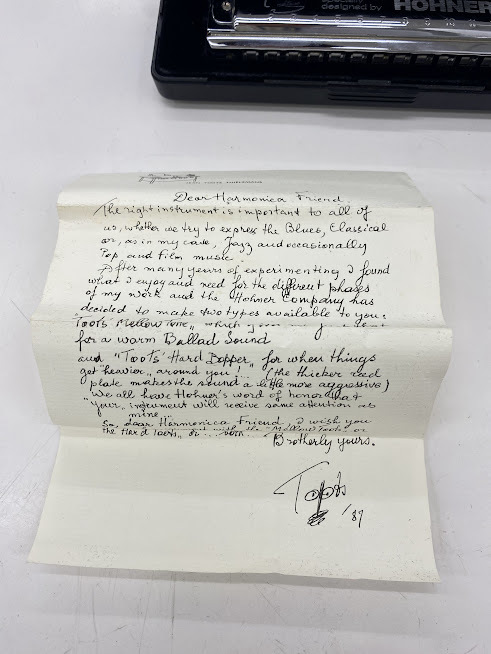 designed by HOHNER
Dear Harmonica Friend
The right instrument is important to all of
us, whether we try to express the Blues, Classical
or, as in my case, Jazz and occasionally
Pop and film music.
After many years of experimenting I found
what I enjoy and need for the different phases
of my work and the Hohner Company has
decided to make two types available to you:
"Toots Mellow Tone" which
for a warm Ballad Sound
and "Toots' Hard Bopper" for when things
get heavier around you!... (the thicker reed
plate makes the sound a little more aggressive)
We all have Hohner's word of honor that
your instrument will receive same attention as
mine...
So, dear Harmonica Friend, I wish you
the
Brotherly yours.
Toots
'87